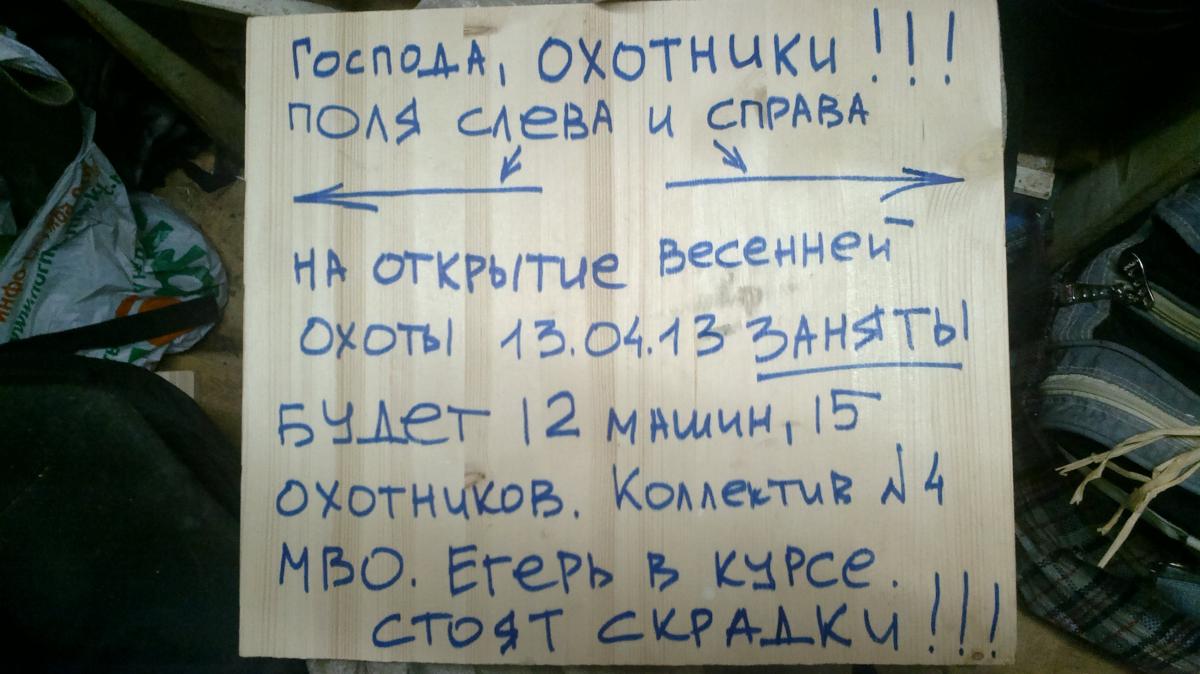 Господа, ОХОТНИКИ!!!
ПОЛЯ СЛЕВА И СПРАВА
НА ОТКРЫТИЕ ВЕСЕННЕЙ
ОХОТЫ 13.04.13 ЗАНЯТЫ
БУДЕТ 12 МАШИН, 15
ОХОТНИКОВ. КОЛЛЕКТИВ N 4
МВО. ЕГЕРЬ В КУРСЕ.
СТОЯТ СКРАДКИ!!!